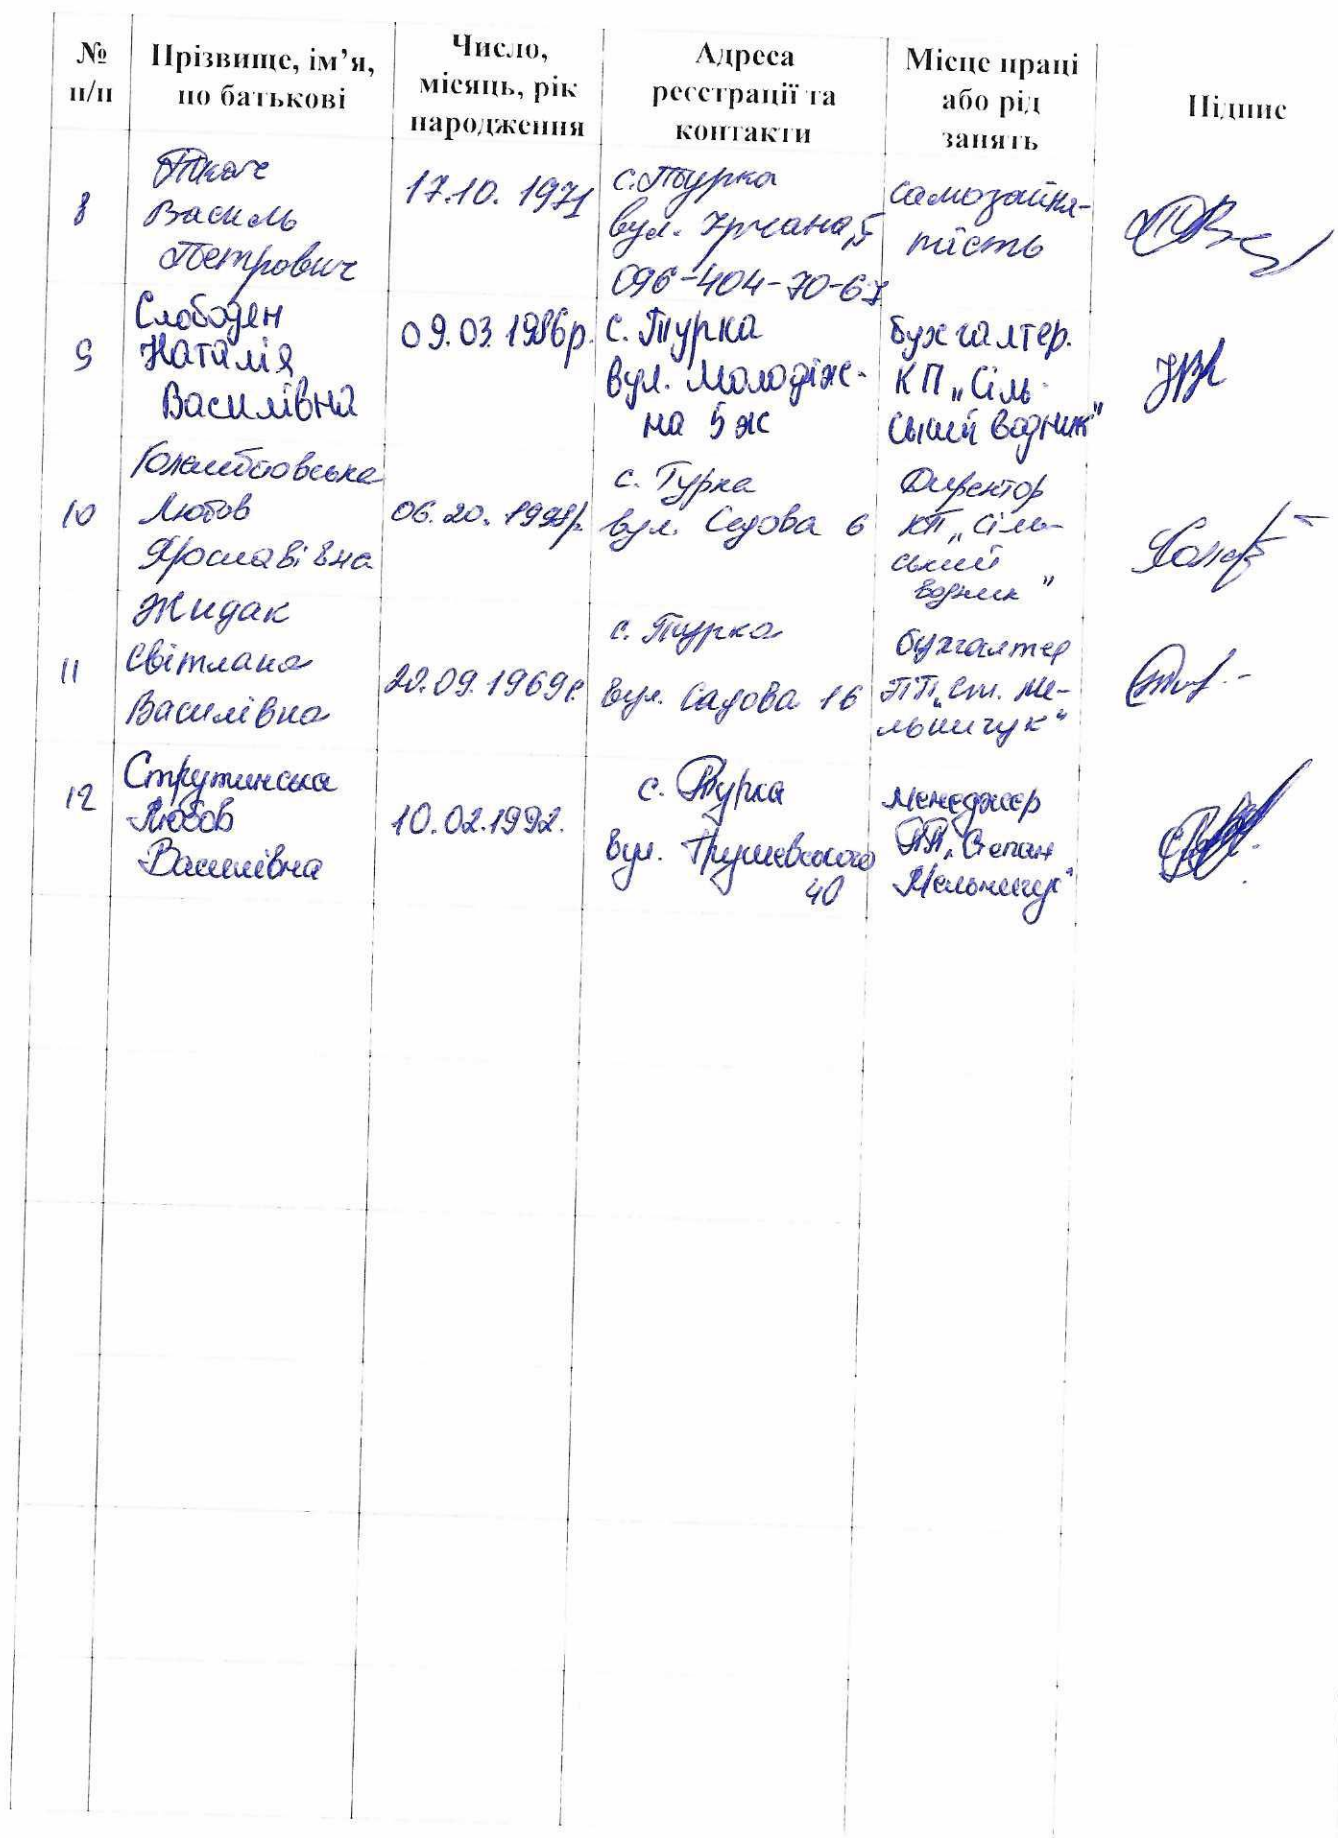 № п/п
Прізвище, ім’я, по батькові
Число, місяць, рік народження
Адреса реєстрації та контакти
Місце праці або рід занять
Підпис
8
Ткач
Василь
Петрович
17.10. 1971
с. Турка
вул. 5
096-404-70-67
самозайня-
тість
9
Слободян
Наталія
Василівна
09.03.1986р.
с. Турка
вул. Молодіж-
на 5ж
бухгалтер.
КП „Сіль-
ський водник"
10
Любов
Ярославівна
06.20.
с. Турка
вул. Садова 6
Директор
КП „Сіль-
ський
водник"
11
Жидак
Світлана
Василівна
20.09.1969р.
с. Турка
вул. Садова 16
бухгалтер
ПП „Ст. Ме-
льничук"
12
Струтинська
Любов
Василівна
10.02.1992.
с. Турка
вул. Грушевського
40
менеджер
ПП „Степан
Мельничук"